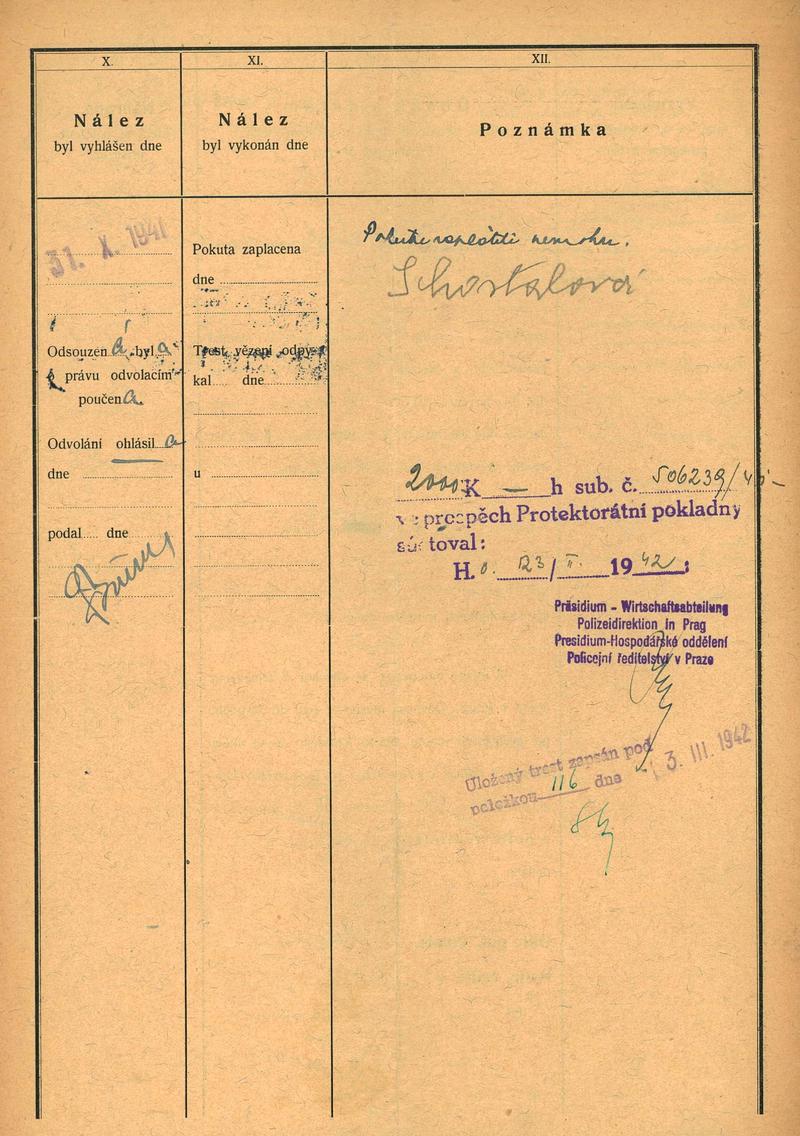 X.
Nález
byl vyhlášen dne
31. X. 1941
Odsouzená byla
o právu odvolacím
poučena.
Odvolání ohlásila
dne
podal dne
XI.
Nález
byl vykonán dne
Pokuta zaplacena
dne
Trest vězení odpy-
kal dne
u
XII.
Poznámka
Pokutu zaplatiti nemohu.
Schostalová
2000 K — h sub. č. 506239/
ve prospěch Protektorátní pokladny
súčtoval:
H. 23/II. 1942
Präsidium - Wirtschaftsabteilung
Polizeidirektion in Prag
Presidium-Hospodářské oddělení
Policejní ředitelství v Praze
Uložený trest zapsán pod
položkou 116 dne 3. III. 1942